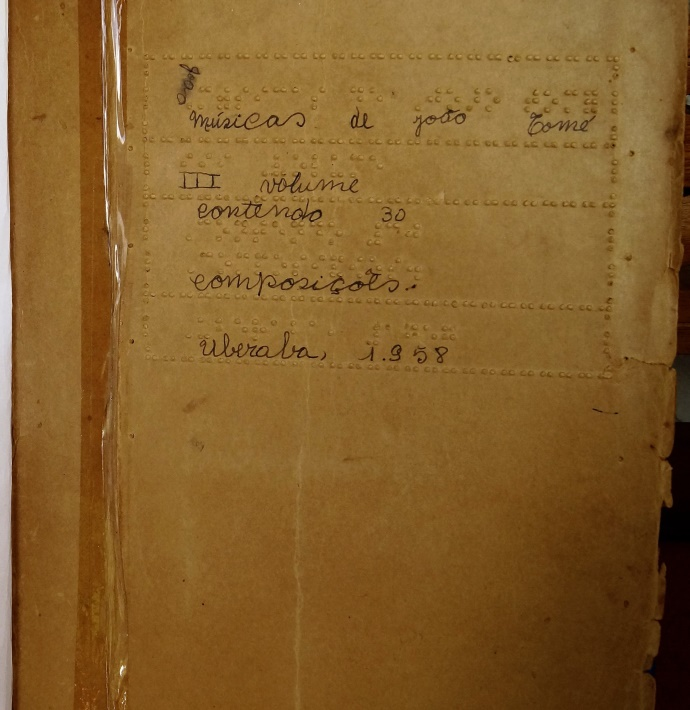 Músicas de joão Tomé
III volume
contendo 30
composicões.
Uberaba, 1.958